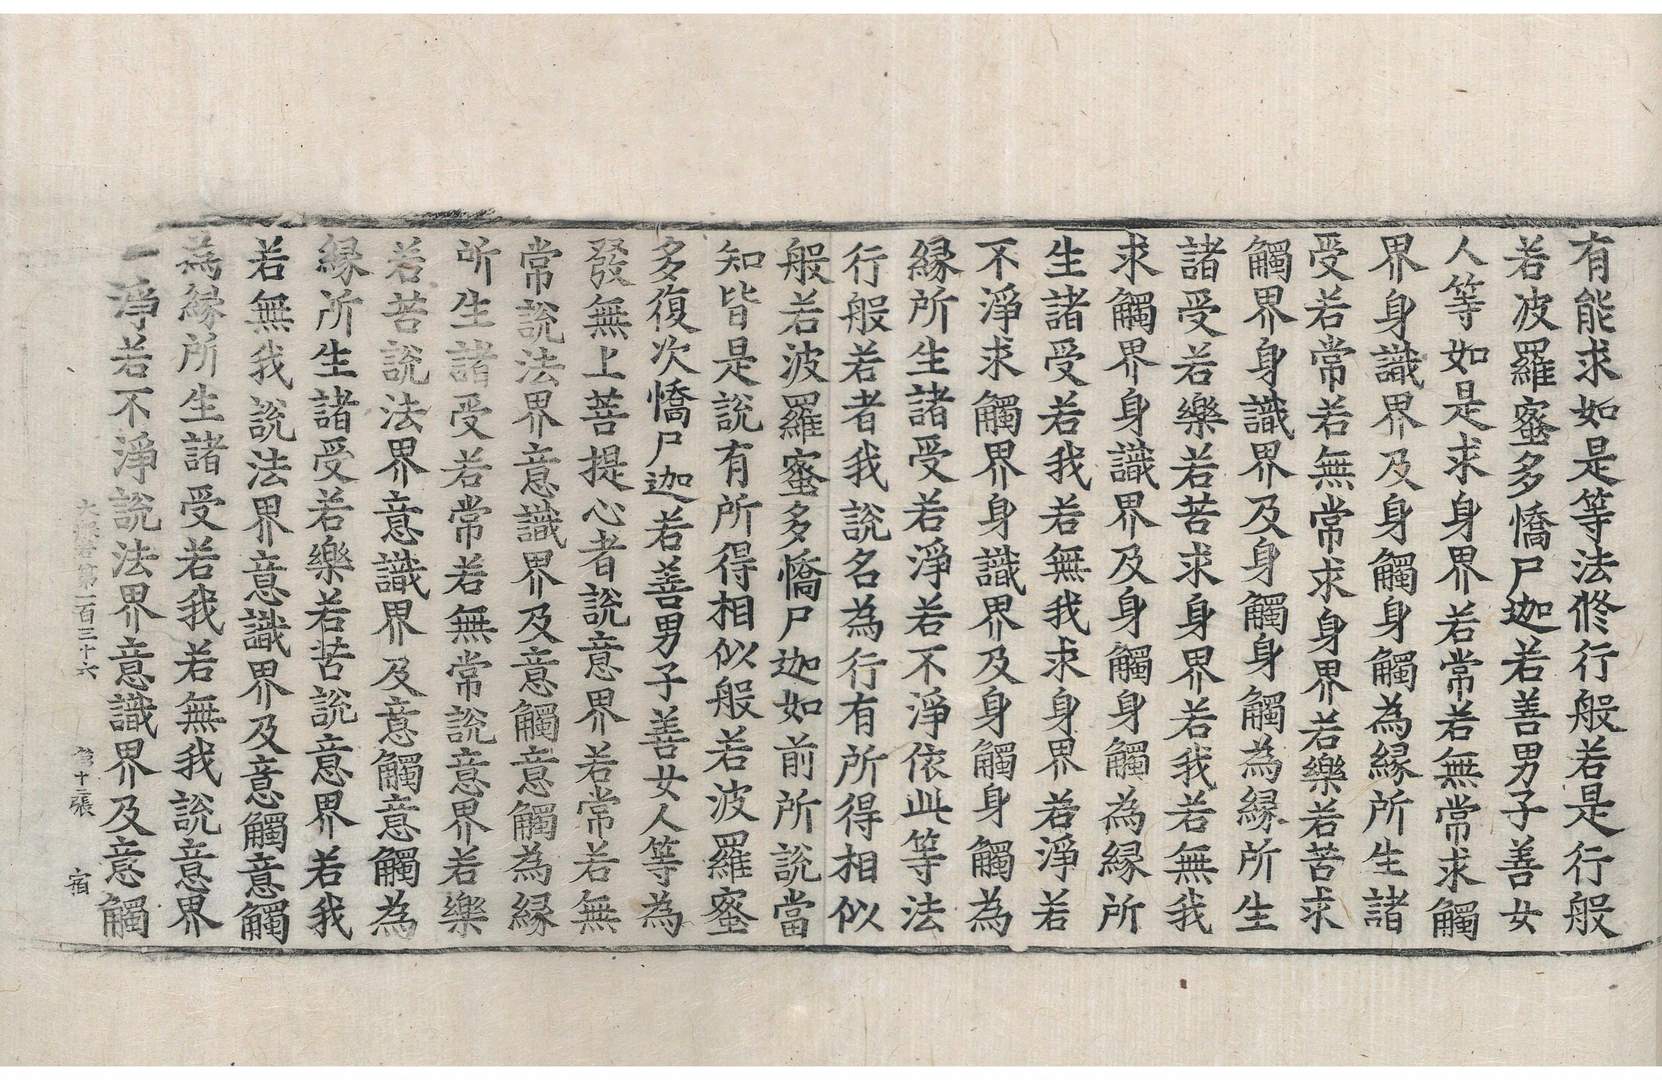 有能求如是等法修行般若是行般
若波羅蜜多憍尸迦若善男子善女
人等如是求身界若常若無常求觸
界身識界及身觸身觸為縁所生諸
受若常若無常求身界若樂若苦求
觸界身識界及身觸身觸為縁所生
諸受若樂若苦求身界若我若無我
求觸界身識界及身觸身觸為縁所
生諸受若我若無我求身界若淨若
不淨求觸界身識界及身觸身觸為
縁所生諸受若淨若不淨依此等法
行般若者我說名為行有所得相似
般若波羅蜜多憍尸迦如前所說當
知皆是說有所得相似般若波羅蜜
多復次憍尸迦若善男子善女人等為
發無上菩提心者說意界若常若無
常說法界意識界及意觸意觸為縁
所生諸受若常若無常說意界若樂
若苦說法界意識界及意觸意觸為
縁所生諸受若樂若苦說意界若我
若無我說法界意識界及意觸意觸
為縁所生諸受若我若無我說意界
淨若不淨說法界意識界及意觸
大般若第一百三十六 第十三張 宿